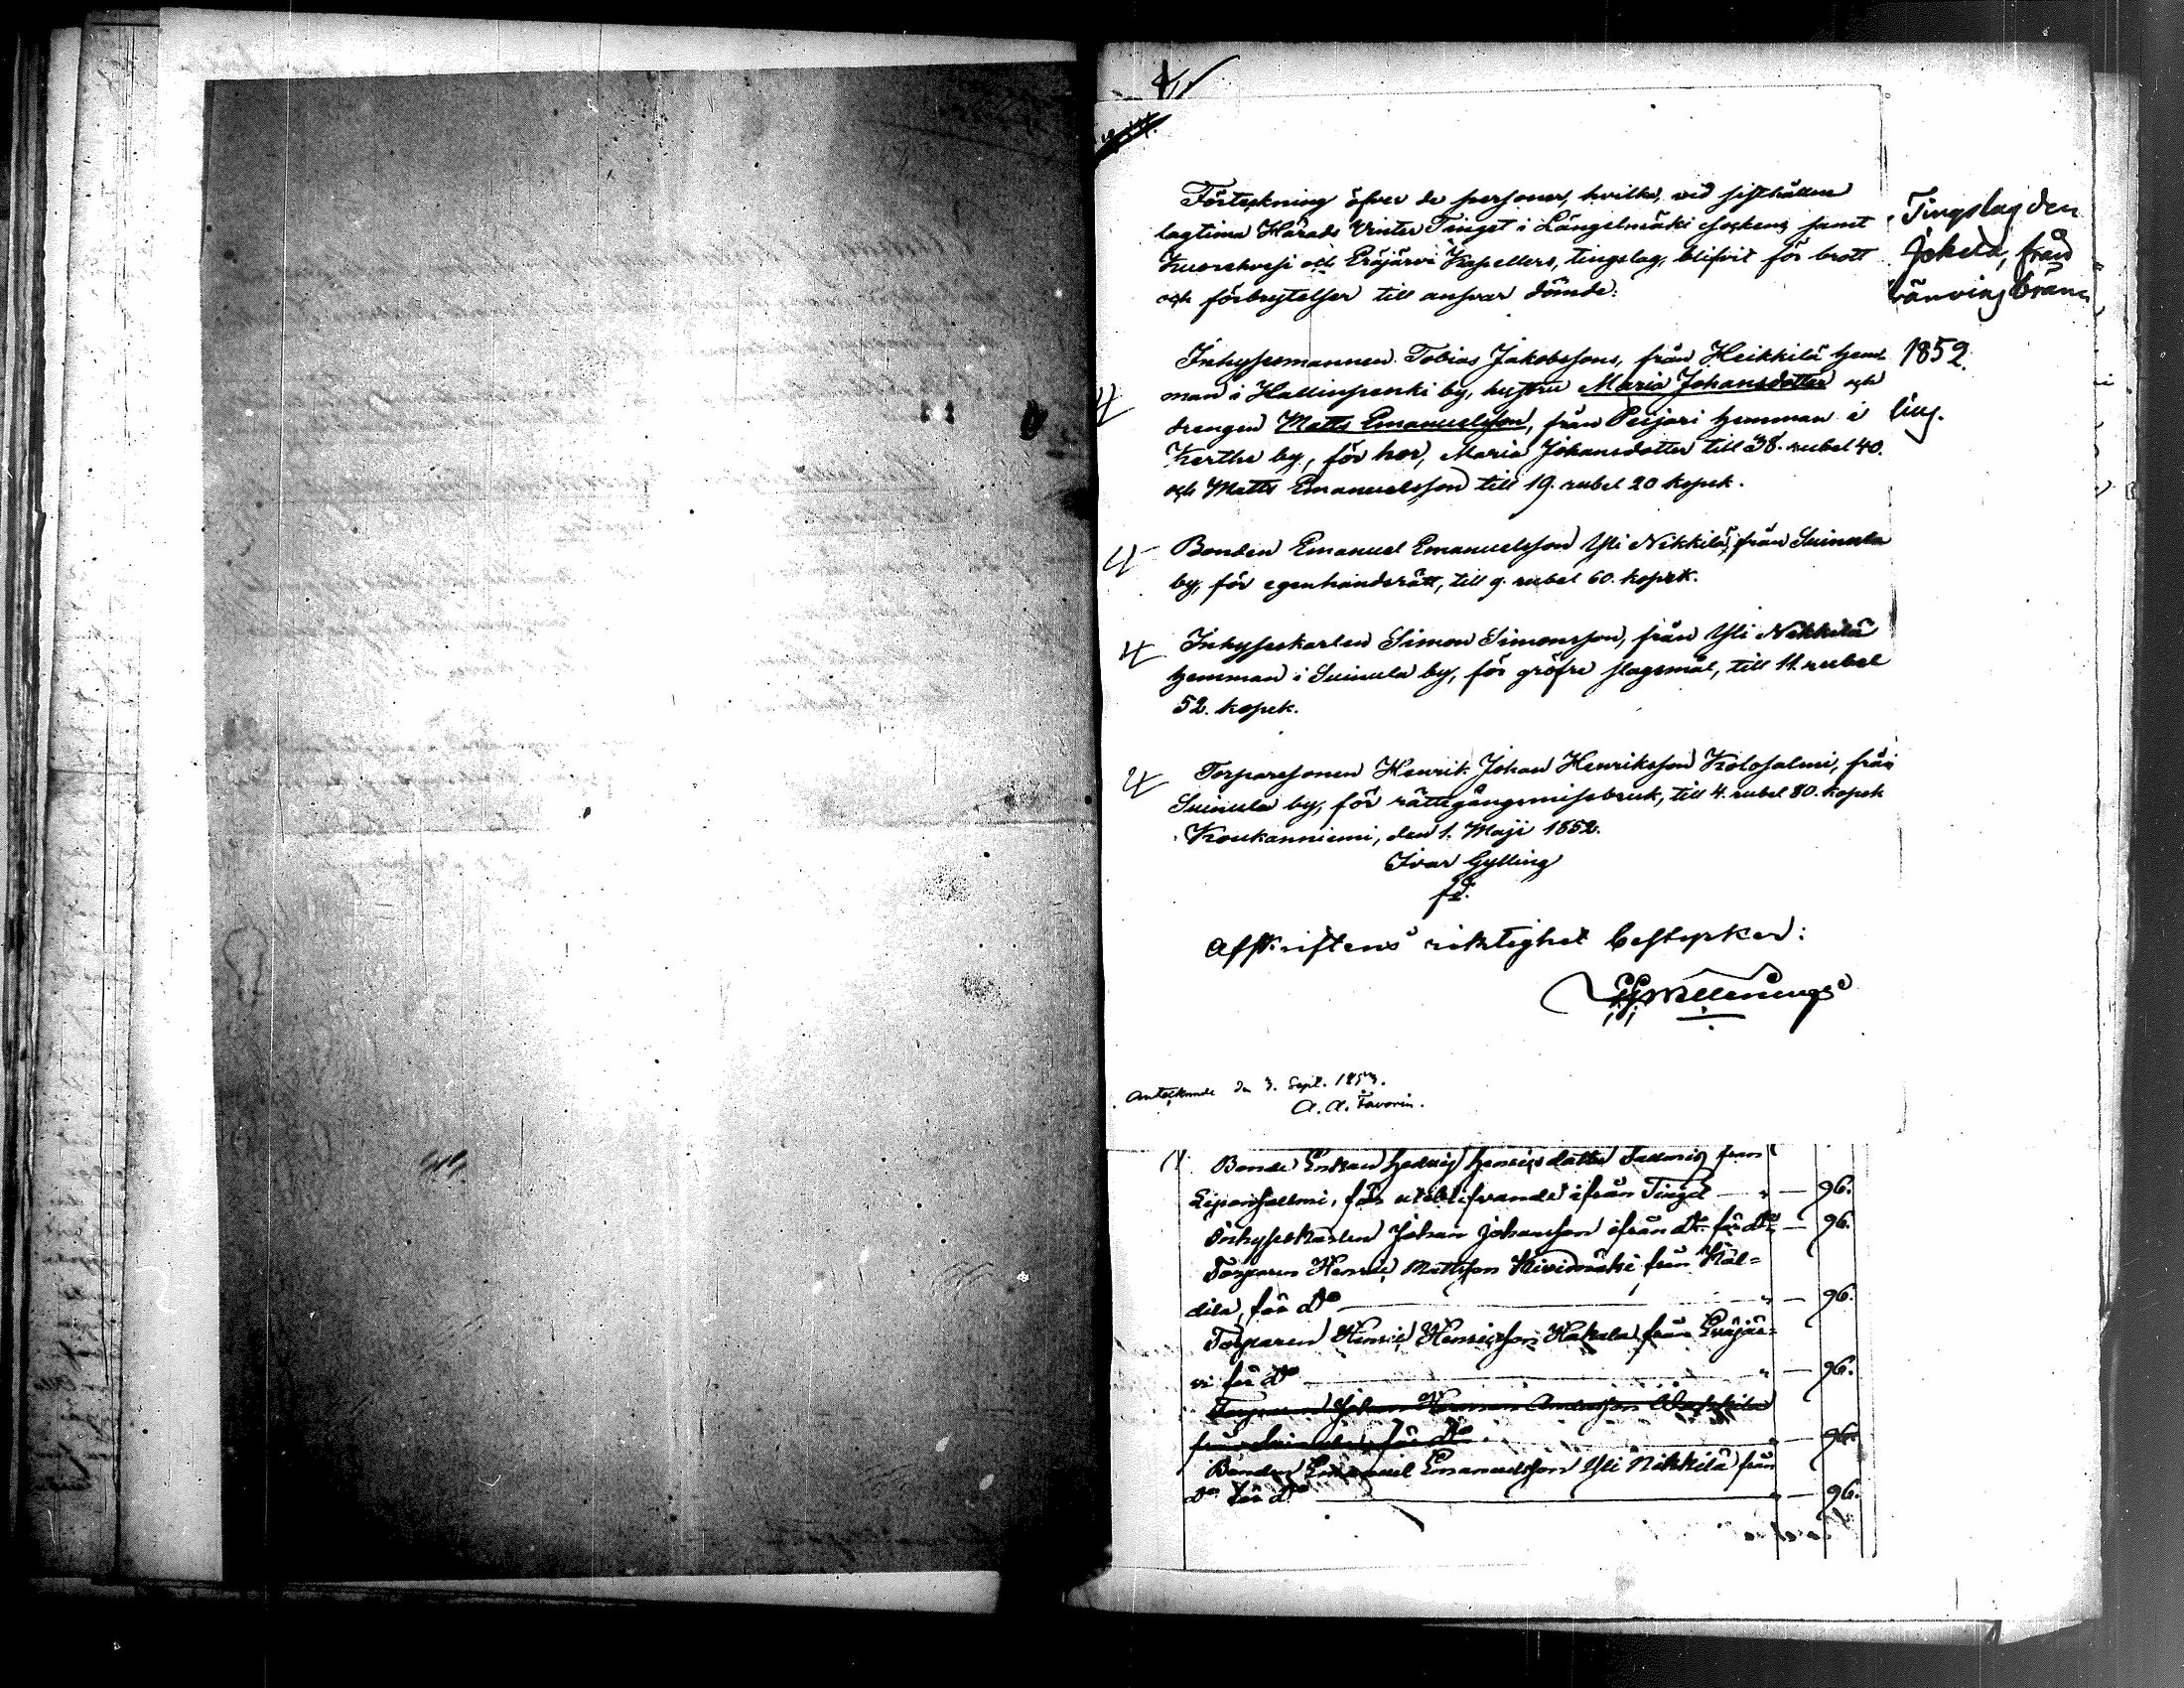 Förteckning öfver de personer, hvilka, vid sisthållne
lagtima Härads Vinter Tinget i Längelmäki sockens samt
Kuorehvesi och Eräjärvi Kapellers, tingslag, blifvit för brott
och förbrytelser till answar dömde:
Inhysesmannen Tobias Jakobssons, från Heikkilä hem-
man i Hallinpenki by, hustru Maria Johansdotter och
drengen Matts Emanuelsson, från Peijari hemman i
Kerthe by, för hor, Maria Johansdotter till 38. rubel 40.
och Matts Emanuelsson till 19. rubel 20 kopek.
Bonden Emanuel Emanuelsson Yli Nikkilä, från Suinula
by, för egenhandsrätt, till 9. rubel 60. kopek.
Inhyseskarlen Simon Simonsson, från Yli Nikkilä
hemman i Suinula by, för gröfre slagsmål, till 11. rubel
52. kopek.
Torparesonen Henrik Johan Henriksson Kolosalmi, från
Suinula by, för rättegångsmissbruk, till 4. rubel 80. kopek
Koukanniemi, den 1. Maji 1852.
Ivar Gylling
fd.
Afskriftens riktighet bestyrker:
Antecknade den 3. Sept. 1853.
A. A. Favorin.
Tingslag den
Jokela, från
1852.
Bonde Enkan Hedvig Henricsdotter från
för uteblifvande ifrån Tinget — 96.
Inhyseskarlen Johan Johansson ifrån do för do — 96.
Torparen Henric Mattsson Kivimäki från Häl=
dilä, för do — 96.
Torparen Henric Henricsson Hakala från Eräjär=
vi för do — 96.
Torparen Johan Herman Andersson
från Suinula, för do — 96.
Bonden Emanuel Emanuelsson Yli Nikkilä från
do för do — 96.